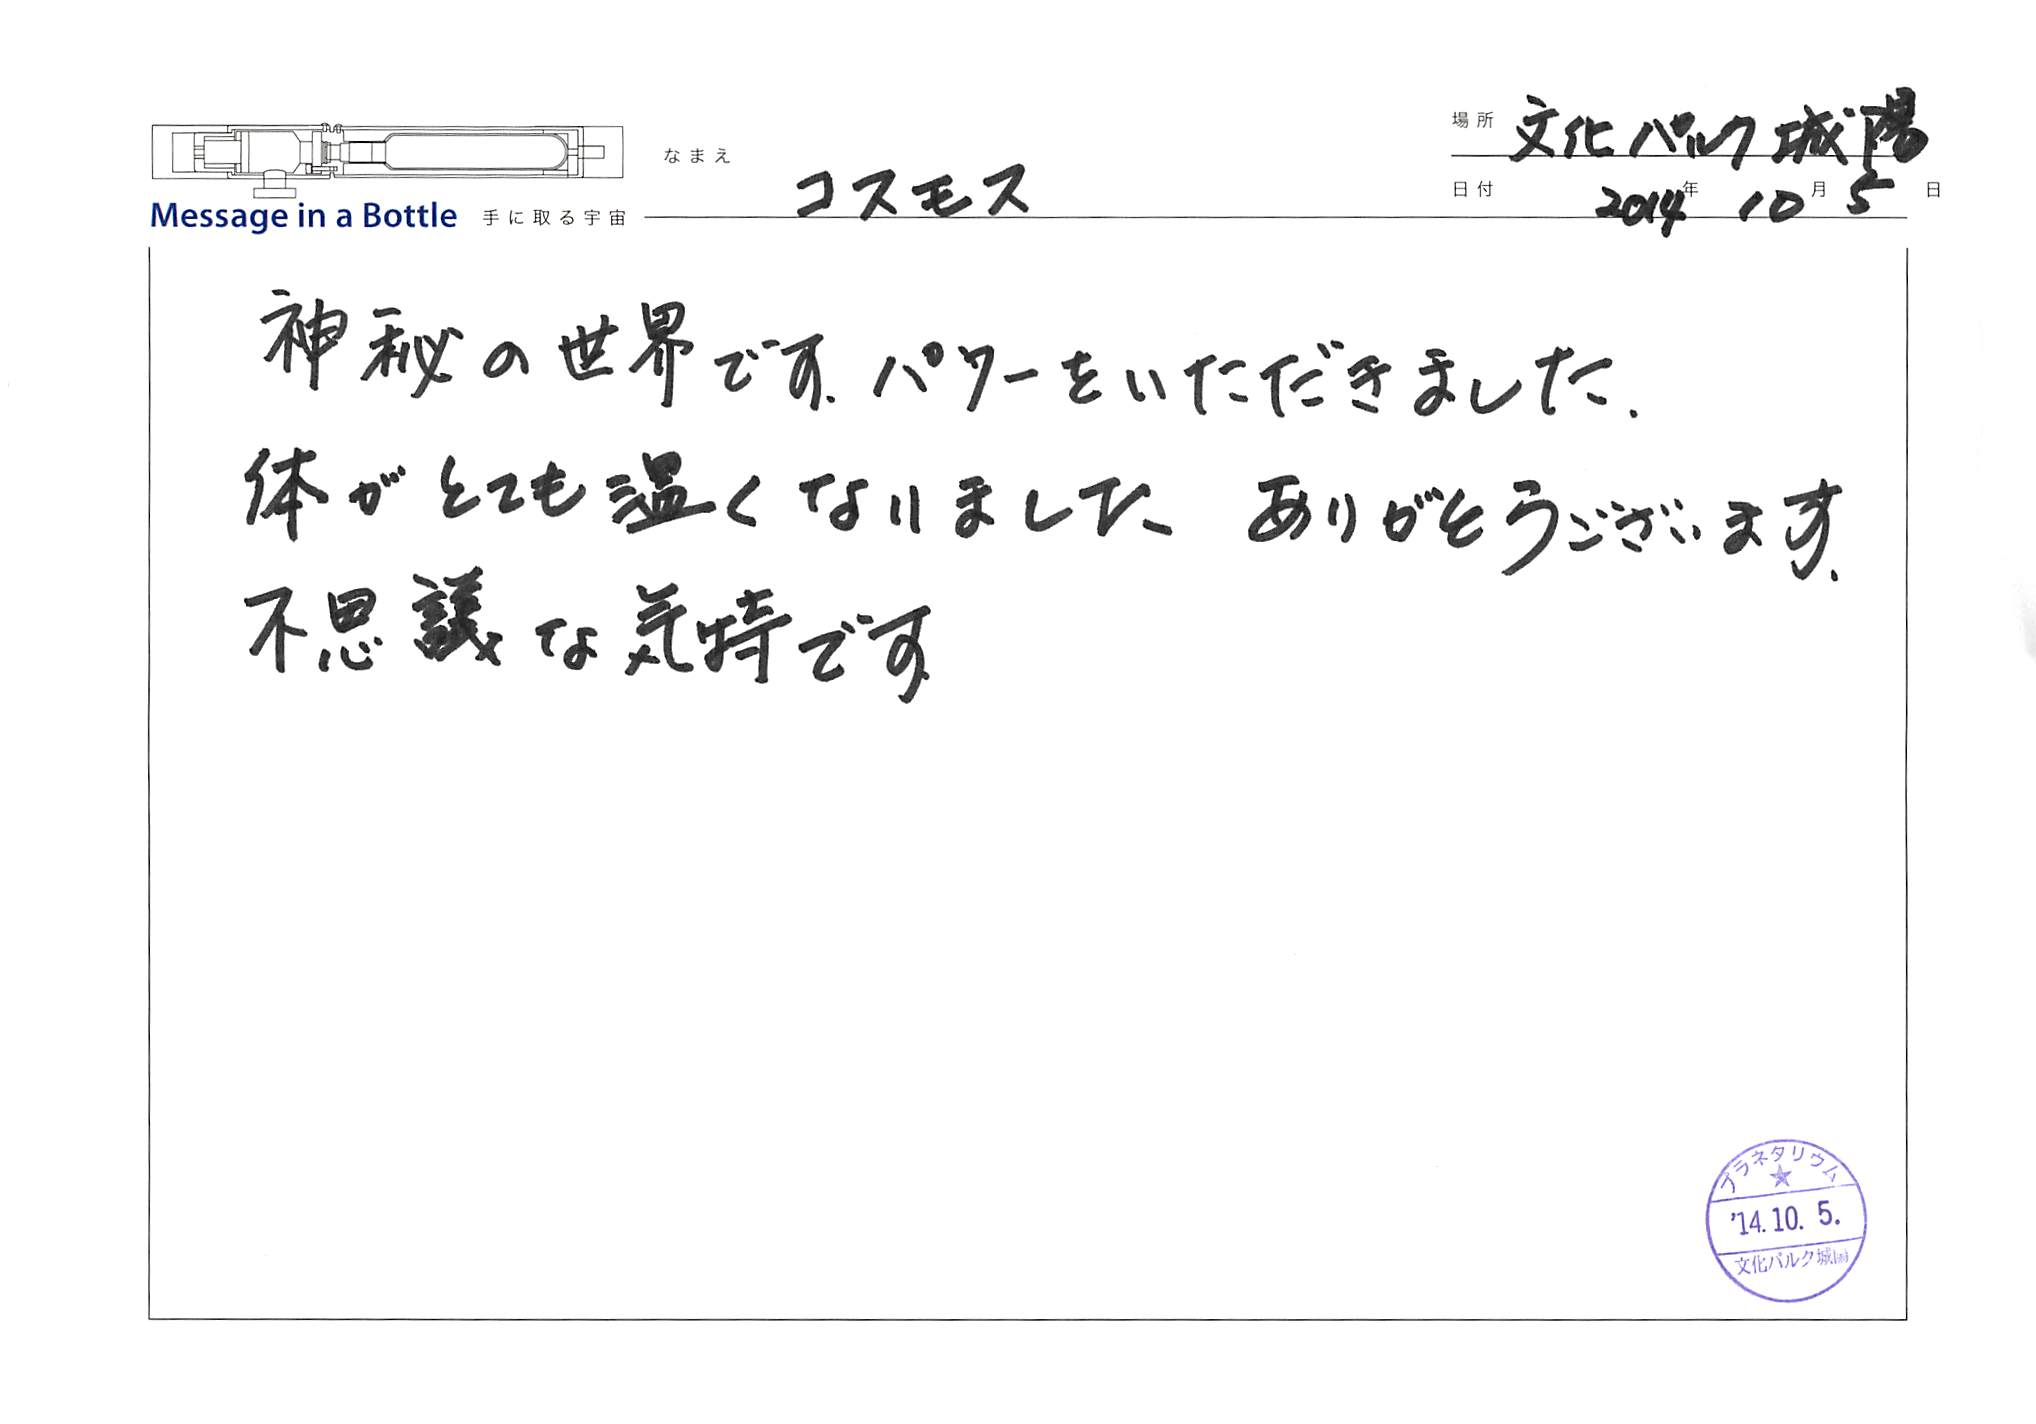 場所 文化パルク城陽
なまえ コスモス
日付 2014年 10月 5日
Message in a Bottle 手に取る宇宙
神秘の世界です. パワーをいただきました.
体がとても温くなりました ありがとうございます.
不思議な気持です
プラネタリウム
'14.10.5.
文化パルク城陽